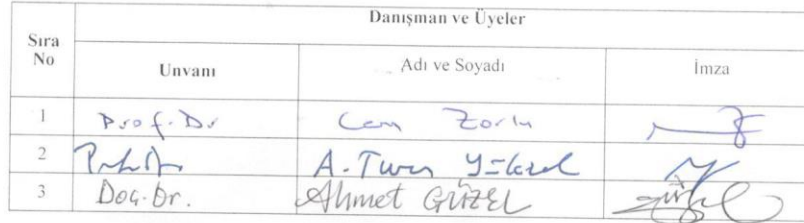 Danışman ve Üyeler
Sıra No Unvanı Adı ve Soyadı İmza
1 Prof. Dr Cem Zorlu
2 A. Turan Yüksel
3 Doç. Dr. Ahmet GÜZEL